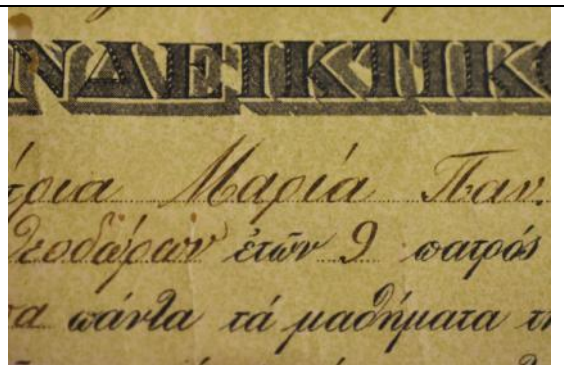 ΝΔΕΙΚΤΙΚ
τρια Μαρία Παν.
Θεοδώρων ἐτῶν 9 πατρός
σα πάντα τά μαθήματα τ